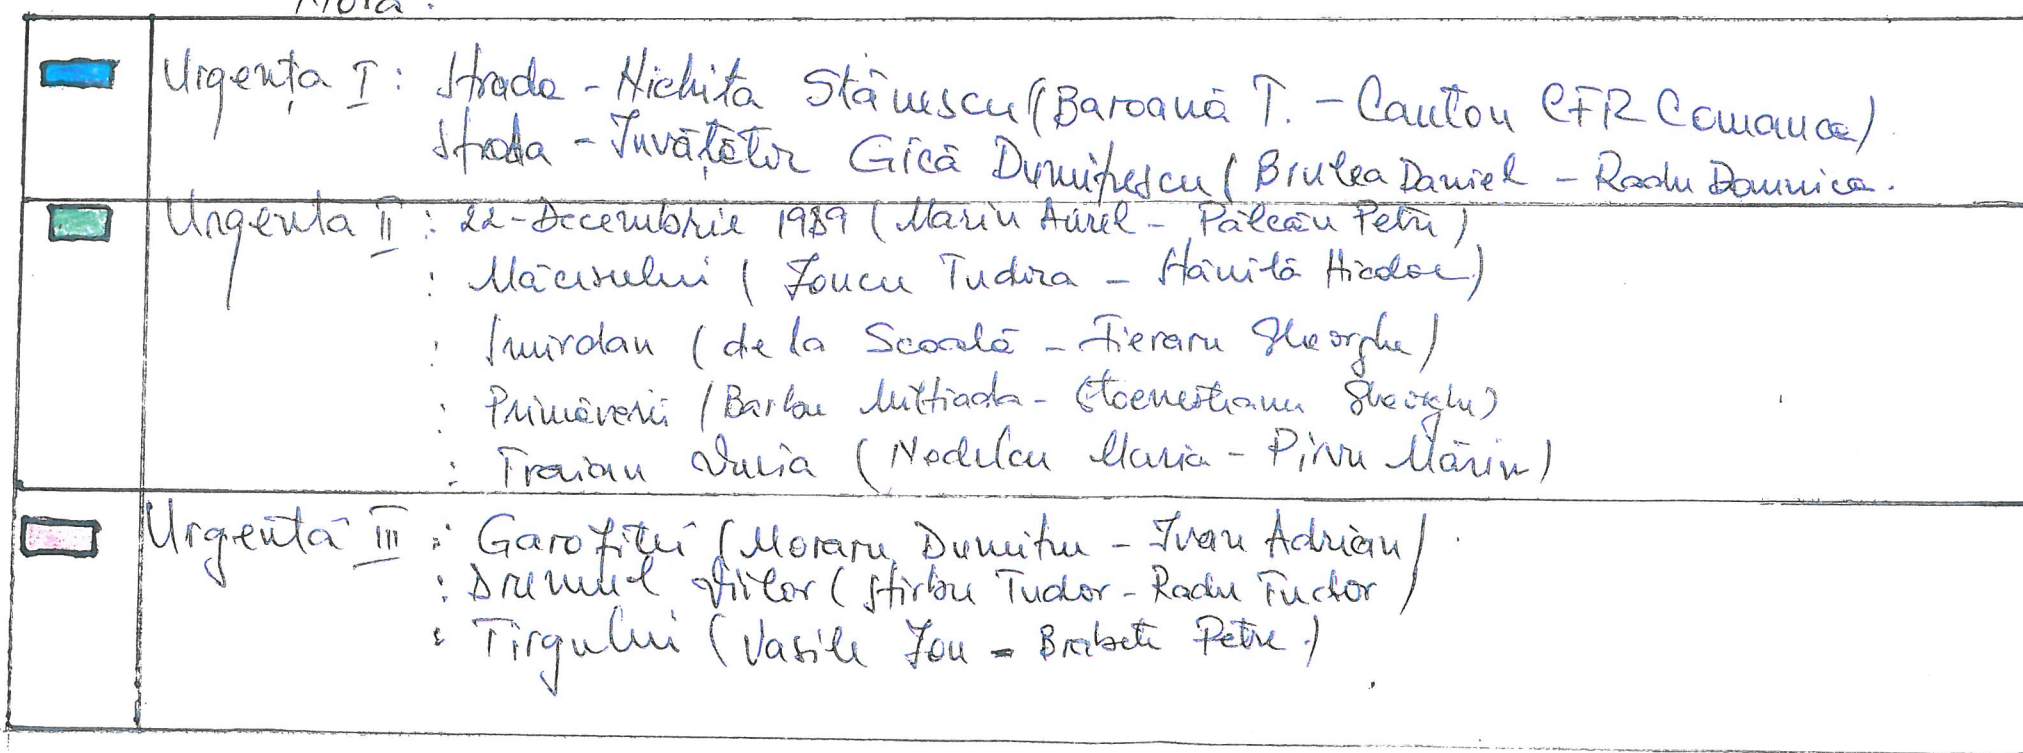 Urgența I : Strada - Nichita Stănescu (Baroană T. - Canton CFR Comanca)
Strada - Învățător Gică Dumitrescu (Brutea Daniel - Radu Domnica.
Urgenta II : 22-Decembrie 1989 (Marin Aurel - Pălcău Petri)
: Măceșului ( Ioncu Tudora - Stăniță Nicolae)
: Smirdan (de la Scoală - Fieraru Gheorghe)
: Primăverii (Barbu Miltiada - Stoenesteanu Gheorghe)
: Traian Vuia (Nedelcu Maria - Pirvu Mărin)
Urgentă III : Garofiței (Moraru Dumitru - Ivan Adrian)
: Drumul Viilor (Stirbu Tudor - Radu Tudor)
: Tirgului (Vasile Ion - Brabete Petre)